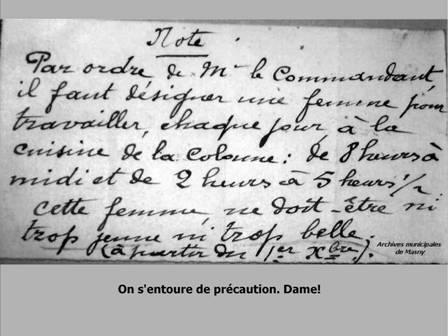 Note
Par ordre de Mr le Commandant,
il faut désigner une femme pour
travailler, chaque jour à la
cuisine de la Colonne : de 8 heurs à
midi et de 2 heurs à 5 heurs 1/2
cette femme, ne doit-être ni
trop jeune ni trop belle.
(à partir du 1er Xbre).
Archives municipales
de Masny
On s'entoure de précaution. Dame!